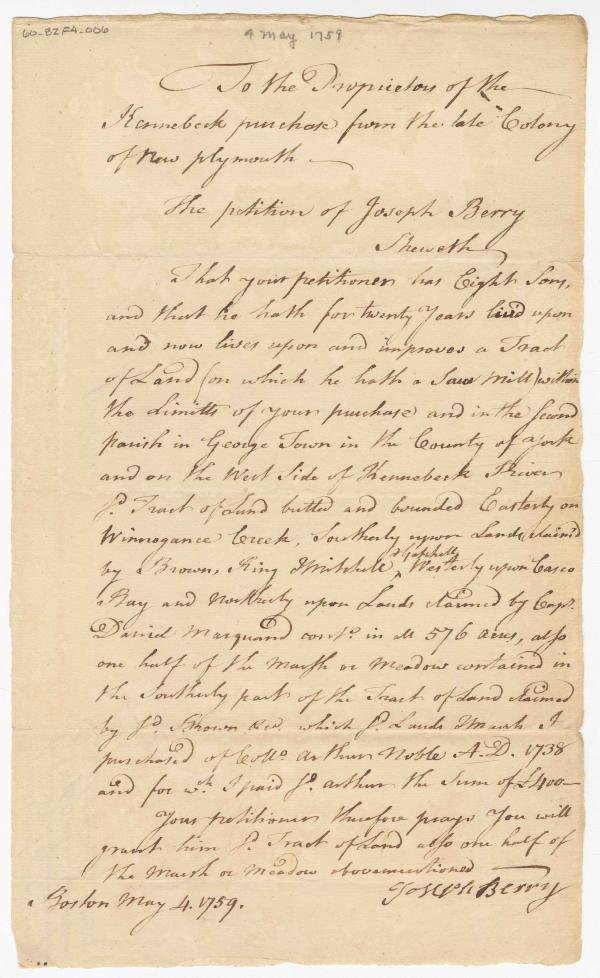 60-B2F4-006
4 May 1759
To the Proprietors of the
Kennebeck purchase from the late Colony
of New plymouth
The petition of Joseph Berry
Sheweth
That your petitioner has Eight Sons,
and that he hath for twenty Years liv'd upon
and now lives upon and improves a Tract
of Land (on which he hath a Saw Mill) within
the Limitts of your purchase and in the Second
parish in George Town in the County of York
and on the West Side of Kennebeck River
sd. Tract of Land butted and bounded Easterly on
Winnegance Creek, Southerly upon Lands claim'd
by Brown, King Mitchell, Westerly upon Casco
Bay and Northerly upon Lands claimed by Capt.
Daniel Marquand contg. in all 576 acres, also
one half of the Marsh or Meadow contained in
the Southerly part of the Tract of Land claimed
by sd. Brown &ca. which sd. Lands & Marsh I
purchased of Collo. Arthur Noble A.D. 1738
and for wh. I paid sd. Arthur the Sum of £400
Your petitioner therefore prays You will
grant him sd. Tract of Land also one half of
the Marsh or Meadow abovementioned
Joseph Berry
Boston May 4. 1759.